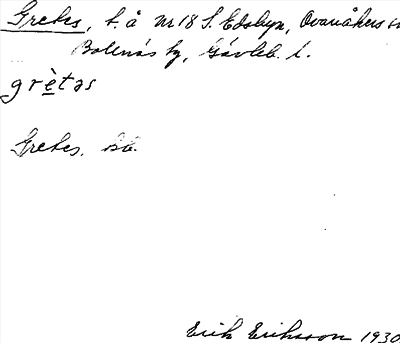 Gretes, t. å nr 18 S. Edsbyn, Ovanåkers sn
Bollnäs tg, Gävleb. l.
grètəs
Gretes.
Erik Eriksson 1930